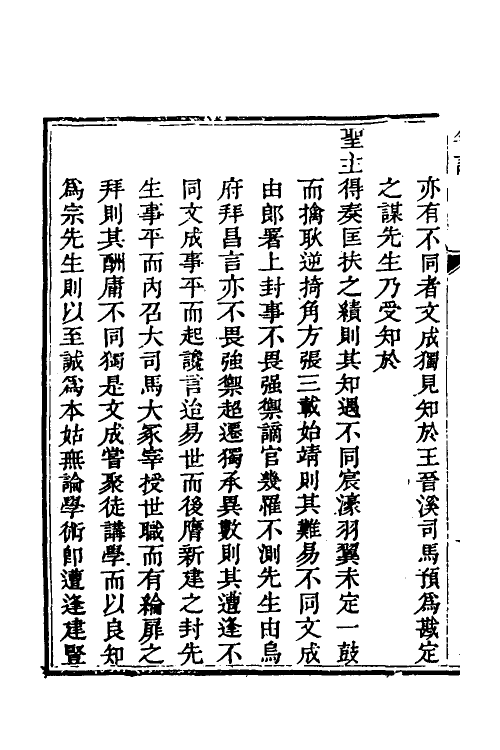 亦有不同者文成獨見知於王晉溪司馬預爲戡定
之謀先生乃受知於
聖主得奏匡扶之績則其知遇不同宸濠羽翼未定一鼓
而擒耿逆掎角方張三載始靖則其難易不同文成
由郎署上封事不畏强禦謫官幾罹不測先生由烏
府拜昌言亦不畏強禦超遷獨承異數則其遭逢不
同文成事平而起讒言迨易世而後膺新建之封先
生事平而內召大司馬大冢宰授世職而有綸扉之
拜則其酬庸不同獨是文成嘗聚徒講學而以良知
爲宗先生則以至誠爲本姑無論學術卽遭逢建豎